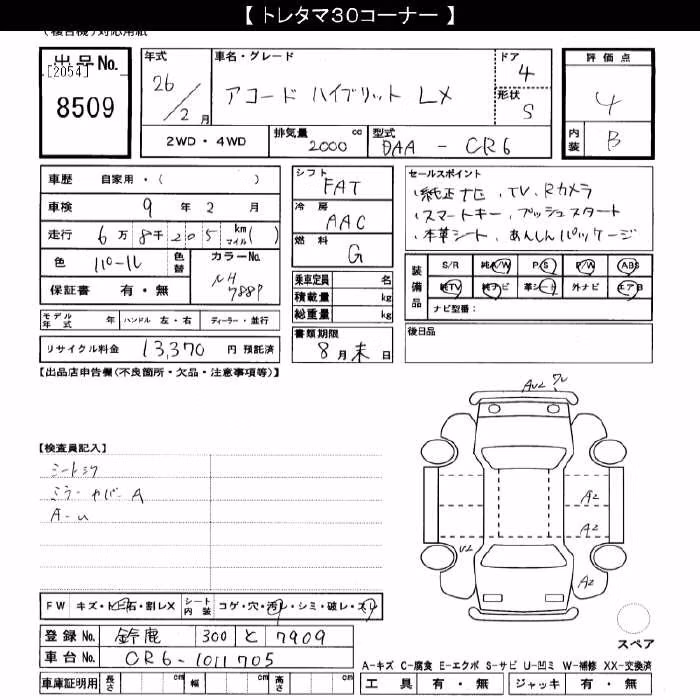 【 トレタマ30コーナー 】
出品No. 年式 車名・グレード ドア 評価点
[2054] 26 アコード ハイブリット LX 4 4
8509 2 月 形状 S
2WD・4WD 排気量 2000 cc 型式 DAA - CR6 内装 B
車歴 自家用・( )
車検 9 年 2 月
走行 6 万 8 千 205 km マイル ( )
色 パール 色替 カラーNo. NH 788P
保証書 有・無
モデル年式 年 ハンドル 左・右 ディーラー・並行
リサイクル料金 13,370 円 預託済
シフト FAT
冷房 AAC
燃料 G
乗車定員 名
積載量 kg
総重量 kg
書類期限 8 月 末 日
セールスポイント
・純正ナビ、TV、Rカメラ
・スマートキー、プッシュスタート
・本革シート、あんしんパッケージ
装備品 S/R 純A/W P/S P/W ABS
純TV 純ナビ 革シート 外ナビ エアB
ナビ型番:
後日品
【出品店申告欄(不良箇所・欠品・注意事項等)】
【検査員記入】
シートシワ
ミラーカバーA
A-U
AU2 A2 A2 U2 A2
FW キズ・トビ石・割レX シート内装 コゲ・穴・汚レ・シミ・破レ・スレ
スペア
登録No. 鈴鹿 300 と 7909
車台No. CR6-1011705
A-キズ C-腐食 E-エクボ S-サビ U-凹ミ W-補修 XX-交換済
車庫証明用 長さ cm 幅 cm 高さ cm 工具 有・無 ジャッキ 有・無